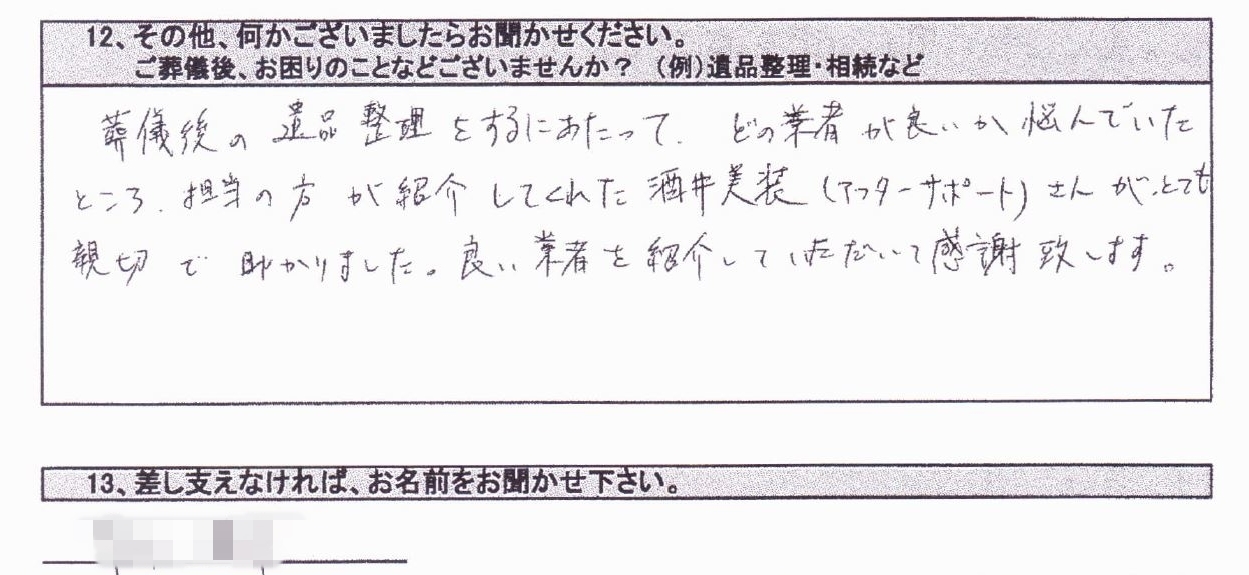 12、その他、何かございましたらお聞かせください。
ご葬儀後、お困りのことなどございませんか？ （例）遺品整理・相続など
葬儀後の遺品整理をするにあたって、どの業者が良いか悩んでいた
ところ、担当の方が紹介してくれた酒井美装（アフターサポート）さんが、とても
親切で助かりました。良い業者を紹介していただいて感謝致します。
13、差し支えなければ、お名前をお聞かせ下さい。